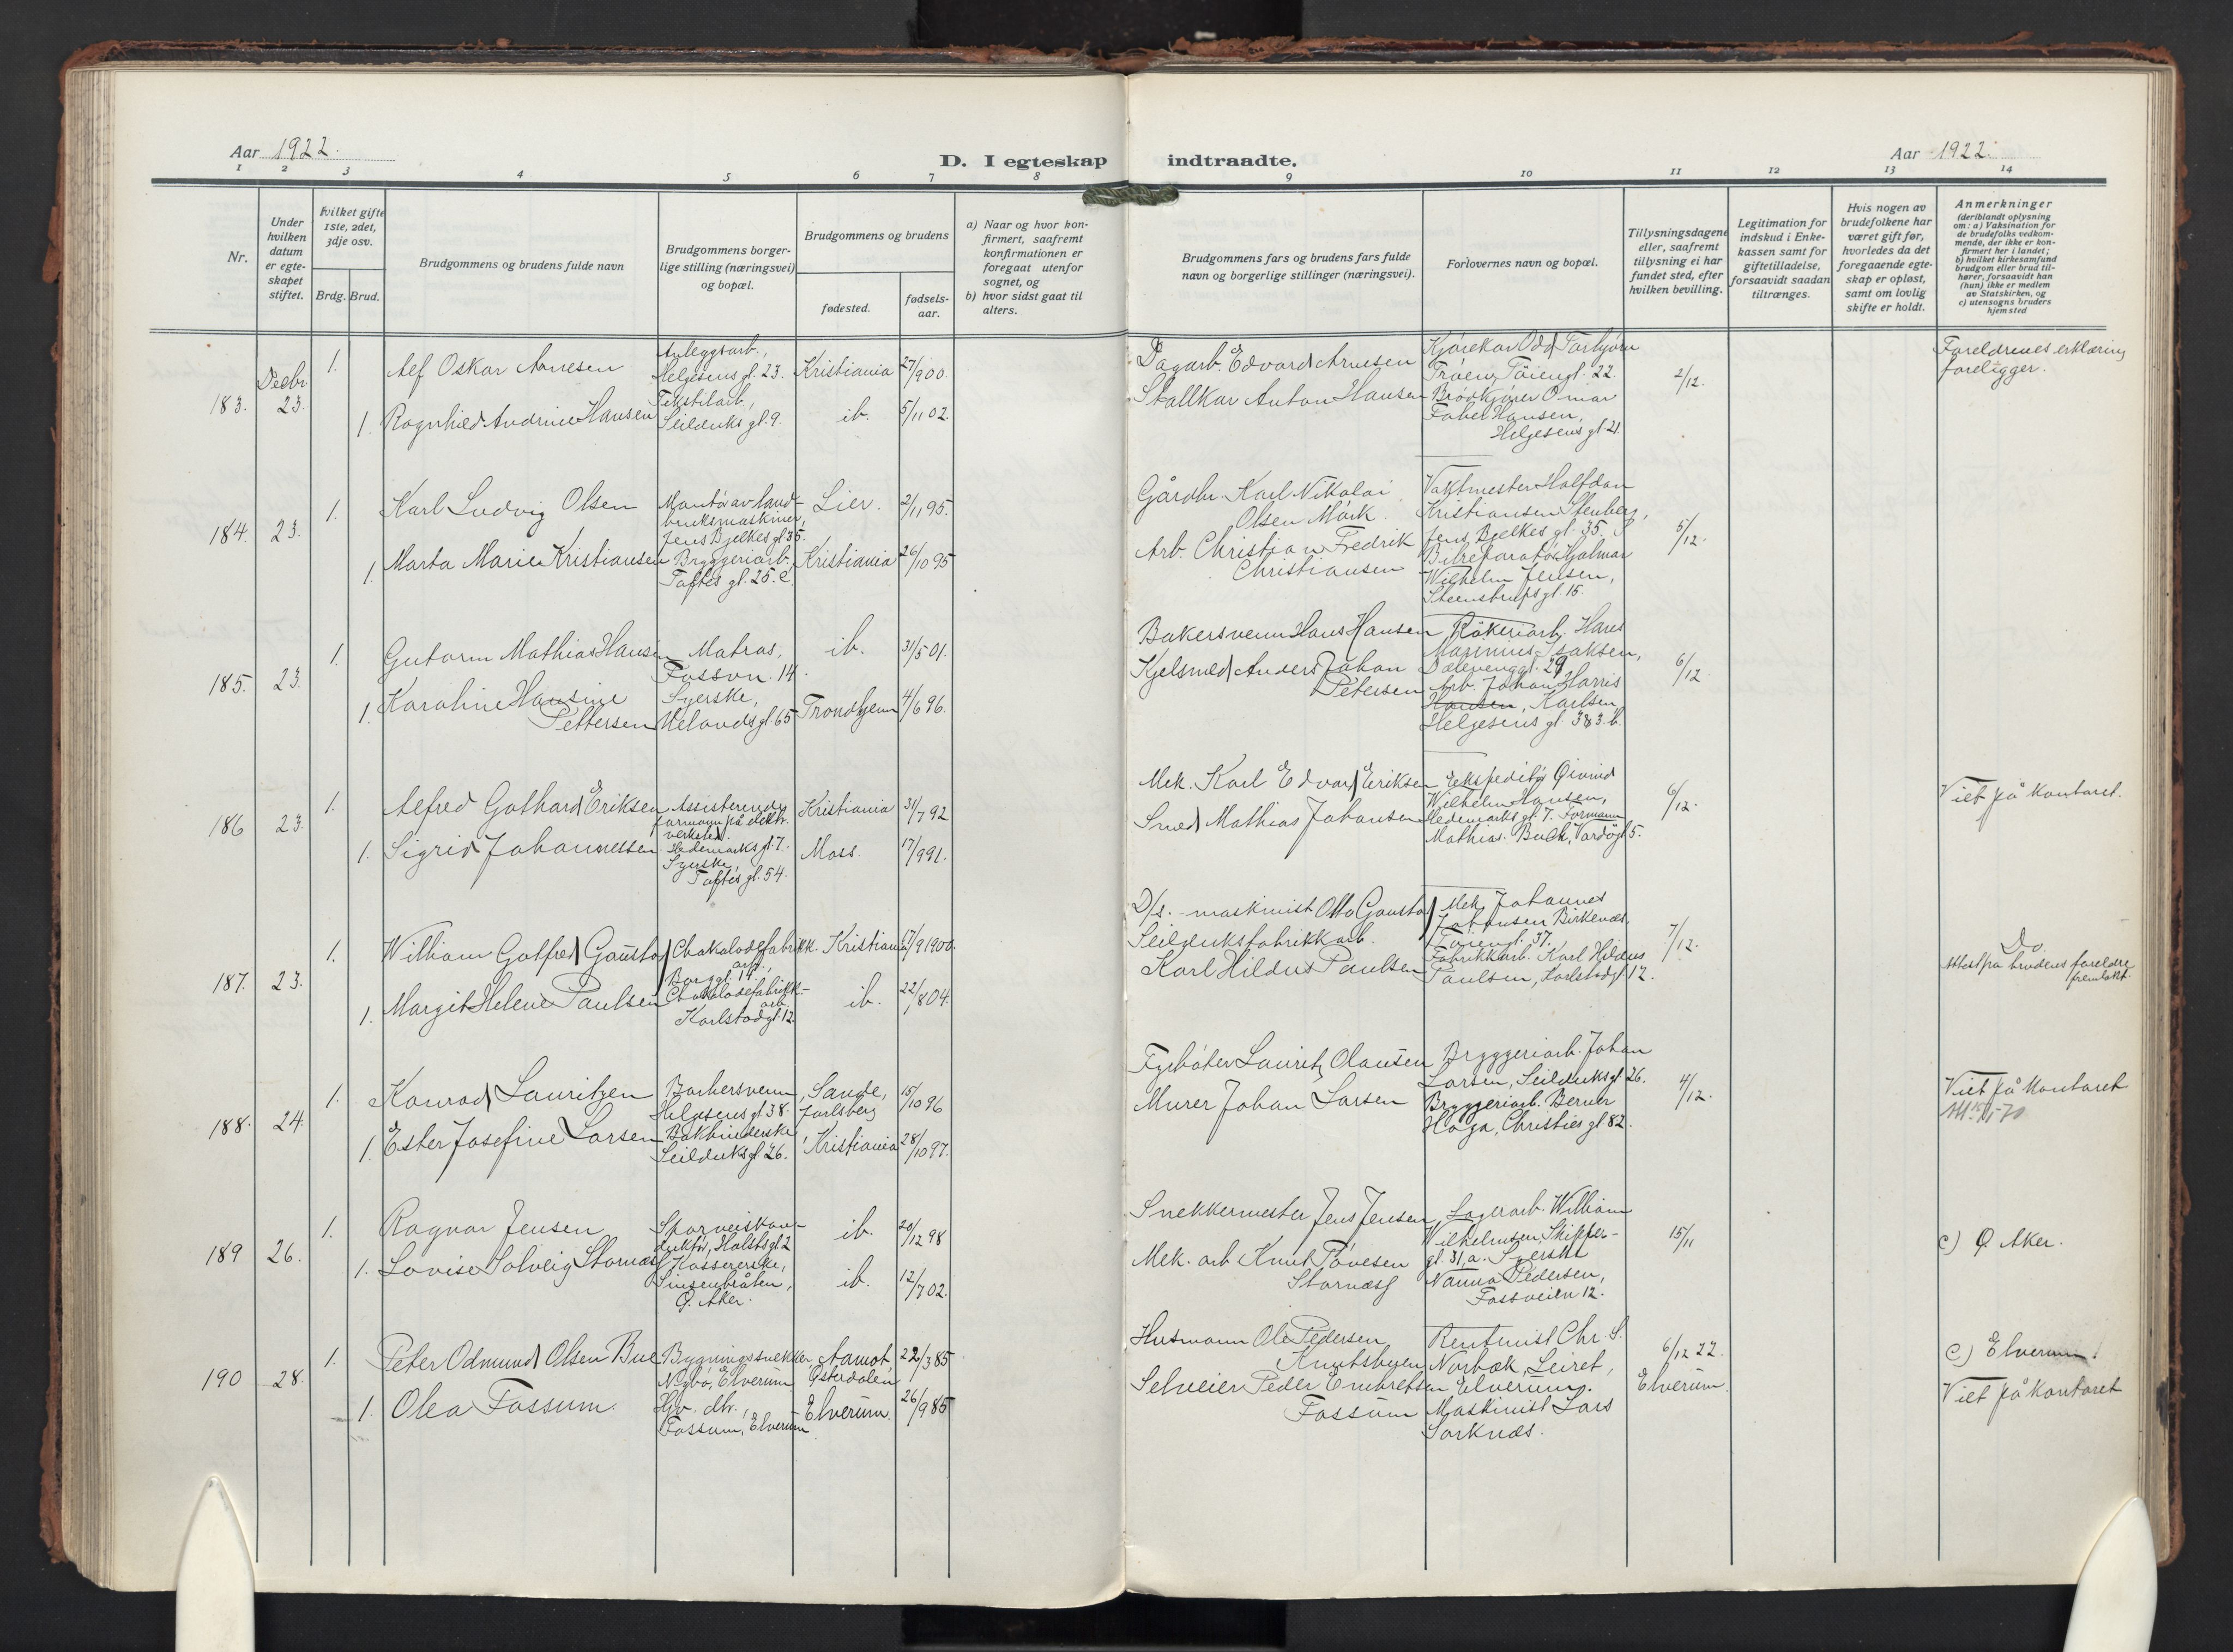 Aar 1922.
D. I egteskap indtraadte.
Aar 1922.
1 2 3 4 5 6 7 8 9 10 11 12 13 14
Nr.
Under
hvilken
datum
er egte-
skapet
stiftet.
hvilket gifte
1ste, 2det,
3dje osv.
Brdg. Brud.
Brudgommens og brudens fulde navn
Brudgommens borger-
lige stilling (næringsvei)
og bopæl.
Brudgommens og brudens
fødested.
fødsels-
aar.
a) Naar og hvor kon-
firmert, saafremt
konfirmationen er
foregaat utenfor
sognet, og
b) hvor sidst gaat til
alters.
Brudgommens fars og brudens fars fulde
navn og borgerlige stillinger (næringsvei).
Forlovernes navn og bopæl.
Tillysningsdagene
eller, saafremt
tillysning ei har
fundet sted, efter
hvilken bevilling.
Legitimation for
indskud i Enke-
kassen samt for
giftetilladelse,
forsaavidt saadan
tiltrænges.
Hvis nogen av
brudefolkene har
været gift før,
hvorledes da det
foregaaende egte-
skap er opløst,
samt om lovlig
skifte er holdt.
Anmerkninger
(deriblandt oplysning
om: a) Vaksination for
de brudefolks vedkom-
mende, der ikke er kon-
firmert her i landet;
b) hvilket kirkesamfund
brudgom eller brud til-
hører, forsaavidt han
(hun) ikke er medlem
av Statskirken, og
c) utensogns bruders
hjemsted
183. Decbr 23.
1. Alf Oskar Arnesen
Anleggsarb.,
Helgesens gt. 23.
Kristiania 27/900.
1. Ragnhild Andrine Hansen
Tekstilarb.,
Seilduks gt. 9.
ib. 5/11 02.
Dagarb. Edvard Arnesen
Stallkar Anton Hansen
Kjørekar Odd Torbjørn
Trøen, Tøiengt. 22.
Brødkjører Omar
Faber Hansen,
Helgesens gt. 21.
2/12.
Foreldrenes erklæring
foreligger.
184. 23.
1. Karl Ludvig Olsen
Montør av land-
bruksmaskiner,
Jens Bjelkes gt 35.
Lier. 2/11 95.
1. Marta Marie Kristiansen
Bryggeriarb.
Toftes gt. 25.c
Kristiania 26/10 95
Gårdbr. Karl Nikolai
Olsen Mørk.
Arb. Christian Fredrik
Christiansen
Vaktmester Halfdan
Kristiansen Stenberg,
Jens Bjelkes gt. 35.
Bilreparatør Hjalmar
Wilhelm Jensen,
Steenstrups gt. 15.
5/12.
185. 23.
1. Gutorm Mathias Hansen
Matros,
Fossvn. 14.
ib. 31/5 01.
1. Karoline Hansine
Pettersen
Syerske,
Helandsgt. 65
Trondhjem 4/6 96.
Bakersvenn Hans Hansen
Kjelsmed Anders Johan
Petersen
Røkeriarb. Hans
Marinius Isaksen,
Dælenenggt. 29
Arb. Johan Harris
Hansen, Karlsen,
Helgesens gt 383.b.
6/12
186 23.
1. Alfred Gothard Eriksen
Assisterende
formann på elektr.
verksted.
Hedemarks gt. 7.
Kristiania 31/7 92
1. Sigrid Johannessen
Syerske,
Toftes gt. 54.
Moss. 17/9 91.
Mek. Karl Edvard Eriksen
Smed Mathias Johansen
Ekspeditør Øivind
Wilhelm Hansen,
Hedemarks gt. 7. Formann
Mathias Buch, Vardøgt 5.
6/12.
Viet på kontoret.
187. 23.
1. William Gotfred Gaustad
Chokoladefabrikk.
arb.,
Borggt. 14.
Kristiania 17/9 1900.
1. Margit Helene Paulsen
Chokoladefabrikk.-
arb.
Karlstadgt. 12.
ib. 22/8 04.
D/s.-maskinist Otto Gaustad
Seilduksfabrikkarb.
Karl Hildus Paulsen
Mek. Johannes
Johansen Birkenæs,
Tøiengt. 37.
Fabrikkarb. Karl Hildus
Paulsen, Karlstadgt 12.
7/12.
Do.
Attest fra brudens foreldre
fremlakt.
188. 24.
1. Konrad Lauritzen
Barbersvenn,
Helgesens gt 38.
Sande,
Jarlsberg
15/10 96
1. Ester Josefine Larsen
Bokbinderske
Seilduksgt 26.
Kristiania 28/10 97.
Fyrbøter Lauritz Olausen
Murer Johan Larsen
Bryggeriarb. Johan
Larsen, Seilduksgt 26.
Bryggeriarb. Berner
Haga, Christies gt 82.
4/12.
Viet på kontoret
189 26.
1. Ragnar Jensen
Sporveiskon-
duktør, Holstsgt 2
ib. 20/12 98
1. Lovise Solveig Stornæs
Kassererske,
Sinsenbråten,
Ø. Aker.
ib. 12/7 02.
Snekkermester Jens Jensen
Mek. arb Knut Tovesen
Stornæs
Lagerarb. William
Wilhelmsen, Skipper-
gt. 31, a. Syerske
Nanna Pedersen,
Fossveien 12.
15/11
c) Ø. Aker.
190 28.
1. Peter Odmund Olsen Bue
Bygningssnekker,
Nybo, Elverum
Aamot,
Østerdalen
22/3 85
1. Olea Fossum.
Hjv. dtr.,
Fossum, Elverum
Elverum. 26/9 85
Husmann Ole Pedersen
Knutsbuen
Selveier Peder Embretsen
Fossum
Rentmist Chr. S.
Norbæk, Leiret,
Elverum.
Maskinist Lars
Sorknæs.
6/12 22.
Elverum.
c) Elverum!
Viet på kontoret